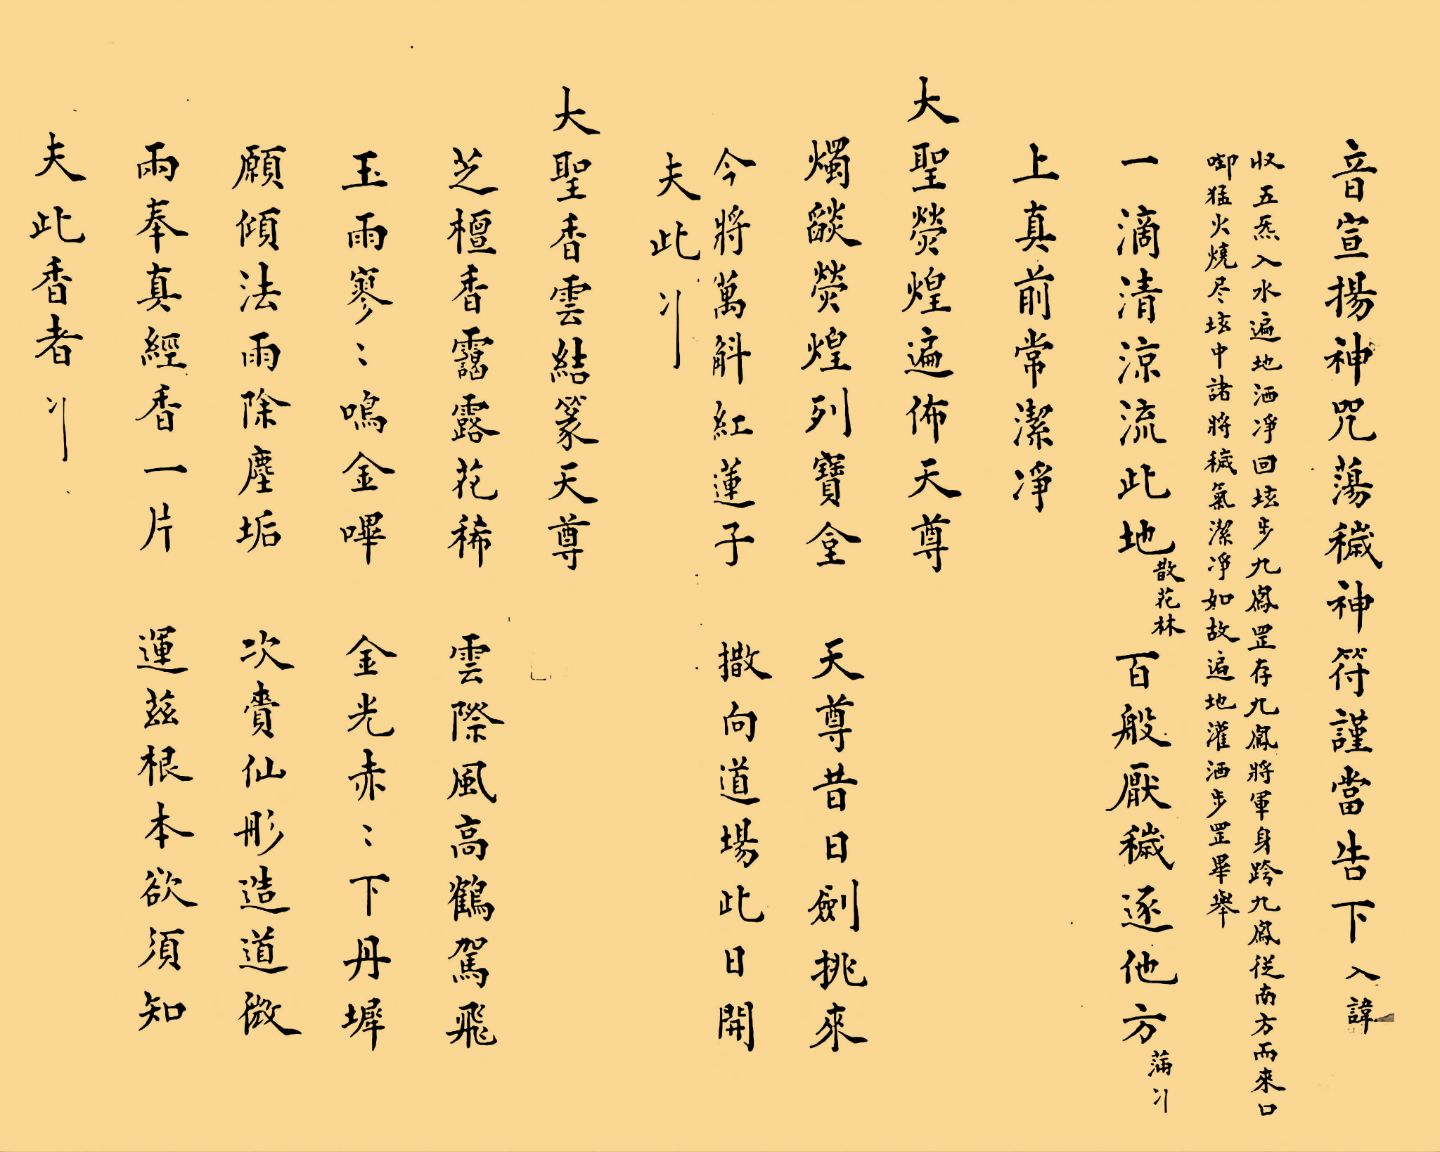 音宣揚神咒蕩穢神符謹當告下入諱
收五炁入水遍地洒凈回壇步九鳳罡存九鳳將軍身跨九鳳從南方而來口
啣猛火燒尽壇中諸將穢氣潔凈如故遍地灌洒步罡畢舉
一滴清涼流此地散花林 百般厭穢逐他方蒲刂
上真前常潔凈
大聖熒煌遍佈天尊
燭燄熒煌列寶臺 天尊昔日劍挑來
今將萬斛紅蓮子 撒向道場此日開
夫此刂
大聖香雲結篆天尊
芝檀香靄露花稀 雲際風高鶴駕飛
玉雨寥〻鳴金嗶 金光赤〻下丹墀
願傾法雨除塵垢 次賚仙彤造道微
兩奉真經香一片 運茲根本欲須知
夫此香者刂